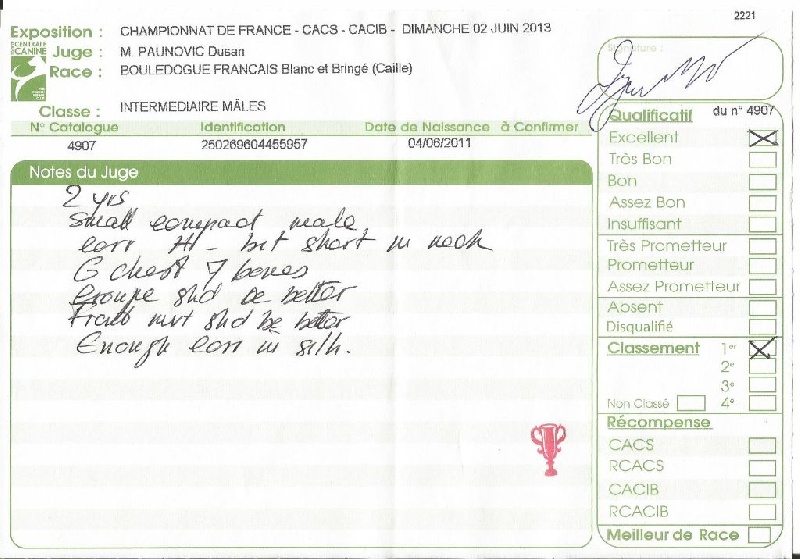 2221
Exposition : CHAMPIONNAT DE FRANCE - CACS - CACIB - DIMANCHE 02 JUIN 2013
CENTRALE
CANINE
Juge : M. PAUNOVIC Dusan
Race : BOULEDOGUE FRANCAIS Blanc et Bringé (Caille)
Classe : INTERMEDIAIRE MÂLES
N° Catalogue Identification Date de Naissance à Confirmer
4907 250269604455957 04/06/2011
Notes du Juge
2 yrs
Small compact male
corr H - but short in neck
G chest & bones
Croupe shd be better
Front mvt shd be better
Enough corr in silh.
Signature :
Qualificatif du n° 4907
Excellent
Très Bon
Bon
Assez Bon
Insuffisant
Très Prometteur
Prometteur
Assez Prometteur
Absent
Disqualifié
Classement 1er
2e
3e
Non Classé 4e
Récompense
CACS
RCACS
CACIB
RCACIB
Meilleur de Race